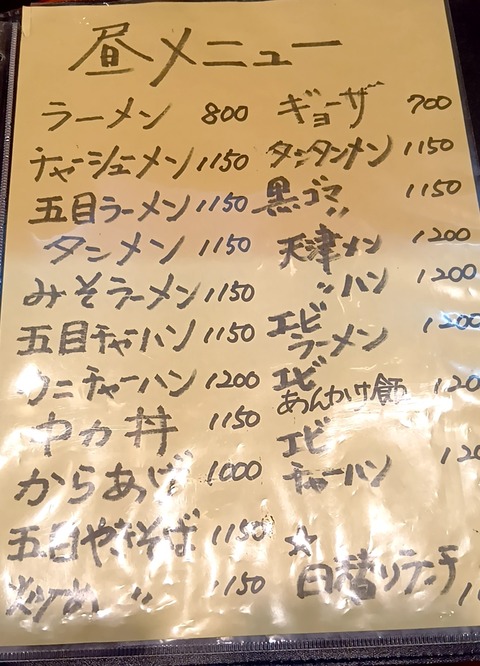 昼メニュー
ラーメン 800
チャーシューメン 1150
五目ラーメン 1150
タンメン 1150
みそラーメン 1150
五目チャーハン 1150
カニチャーハン 1200
中カ丼 1150
からあげ 1000
五目やきそば 1150
〃 1150
ギョーザ 700
タンタンメン 1150
黒ゴマ〃 1150
天津メン 1200
〃ハン 1200
エビ
ラーメン 1200
エビ
あんかけ飯 120
エビ
チャーハン 120
☆
日替りランチ